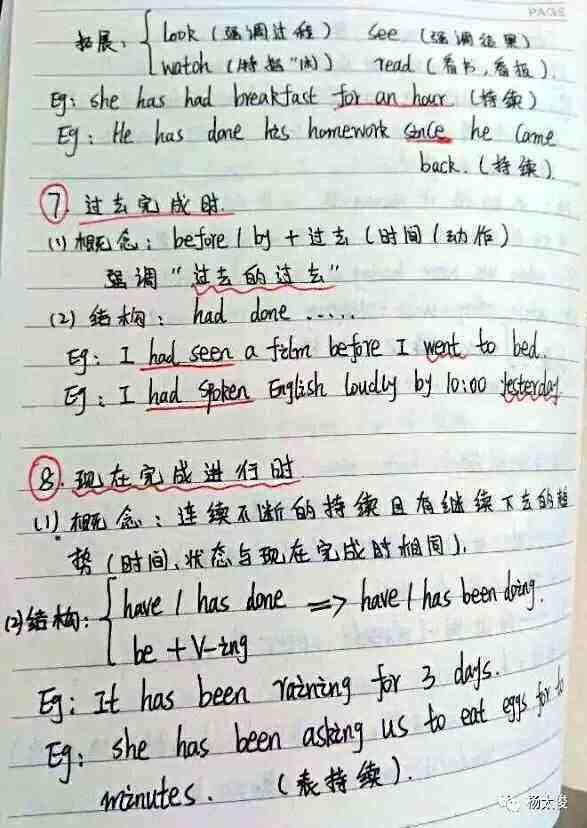 PAGE
拓展：{ look（强调过程） see（强调结果）
watch（特指"闲"） read（看书，看报）.
Eg: she has had breakfast for an hour（持续）
Eg: He has done his homework since he came
back.（持续）
⑦.过去完成时.
(1) 概念：before / by + 过去（时间 / 动作）
强调"过去的过去"
(2) 结构：had done ......
Eg: I had seen a film before I went to bed.
Eg: I had spoken English loudly by 10:00 yesterday.
⑧.现在完成进行时
(1) 概念：连续不断的持续且有继续下去的趋
势（时间、状态与现在完成时相同）.
(2)结构：{ have / has done => have / has been doing.
be + V-ing
Eg: It has been raining for 3 days.
Eg: she has been asking us to eat eggs for
minutes.（表持续）.
杨大俊